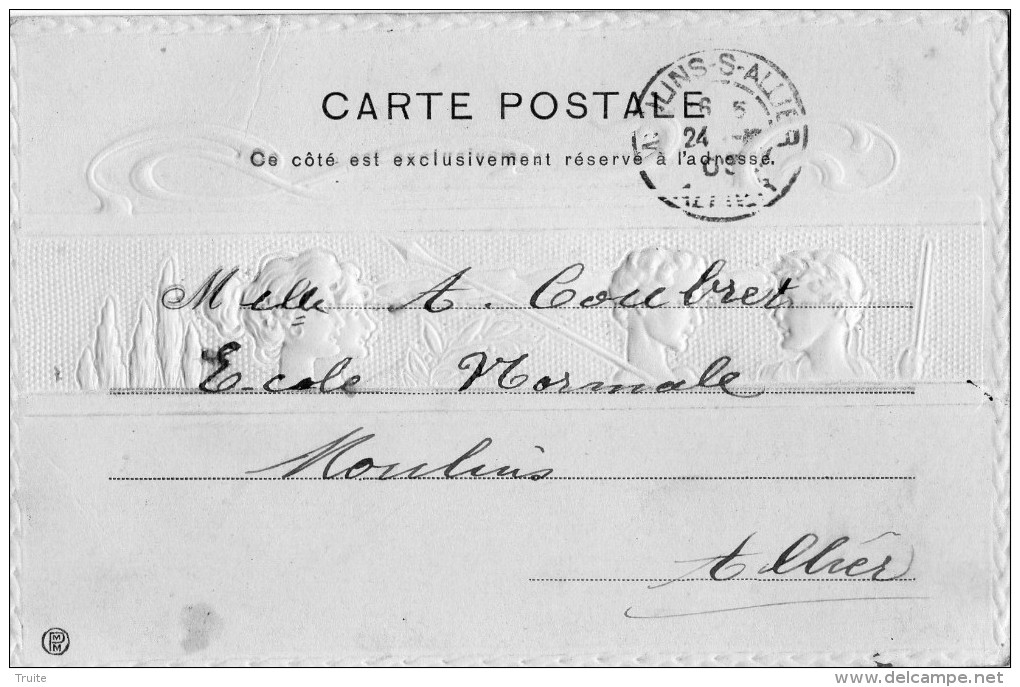 CARTE POSTALE
Ce côté est exclusivement réservé à l'adresse.
MOULINS-S-ALLIER
24
Melle A. Coubret
Ecole Normale
Moulins
Allier
Truite
delcampe.net